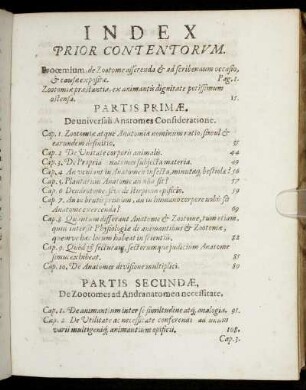 INDEX
PRIOR CONTENTORVM.
Prooemium, de Zootome asserenda & ad scribendum occasio,
& causæ expositæ. Pag. 1.
Zootomiæ præstantia, ex animantis dignitate potissimum
ostensa. 11.
PARTIS PRIMÆ,
De universali Anatomes Consideratione.
Cap. 1. Zootomiæ atque Anatomiæ nominum ratio, simul &
earundem distinctio. 37
Cap. 2. De Unitate corporis animalis. 44
Cap. 3. De Propria Anatomes subjecta materia. 49
Cap. 4. An veniant in Anatomen insecta, minutæq; bestiolæ? 56
Cap. 5. Plantarum Anatome an nulla sit? 57
Cap. 6 De ulteriore sive de Utopicon opificio. 59
Cap. 7 An in brutis primum, an in humano corpore nobis sit
Anatome exercenda?
Cap. 8. Quantum differant Anatome & Zootome, tum etiam,
quid intersit Physiologia de animantibus & Zootome;
quemve hæc locum habeat in scientiis. 
Cap. 9. Quid & sectura, & secturarum publicarum Anatome
simul exhibeat. 81
Cap. 10. De Anatomes divisione multiplici. 89
PARTIS SECUNDÆ,
De Zootomes ad Andranatomen necessitate.
Cap. 1. De animantium inter se similitudine atq; analogia. 91.
Cap. 2. De Utilitate ac necessitate conferendi ad unum
varii multigeniq; animantium opificii, 108.
Cap. 3.